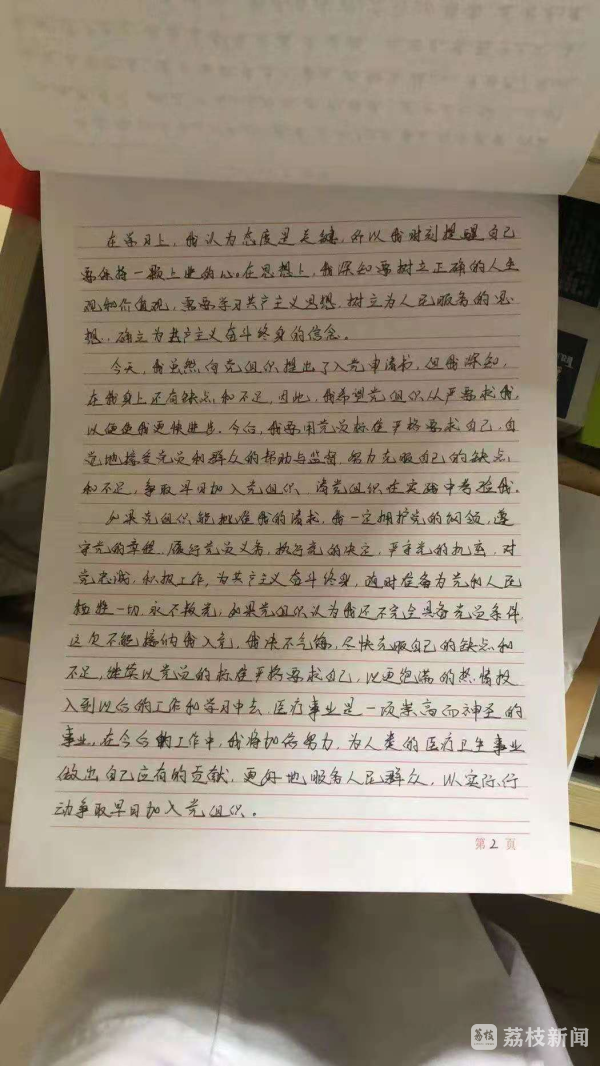 在学习上，我认为态度是关键，所以我时刻提醒自己
要保持一颗上进的心。在思想上，我深知要树立正确的人生
观和价值观，需要学习共产主义思想，树立为人民服务的思
想，确立为共产主义奋斗终身的信念。
今天，我虽然向党组织提出了入党申请书，但我深知，
在我身上还有缺点和不足，因此，我希望党组织从严要求我，
以便使我更快进步。今后，我要用党员标准严格要求自己，自
觉地接受党员和群众的帮助与监督，努力克服自己的缺点
和不足，争取早日加入党组织、请党组织在实践中考验我。
如果党组织能批准我的请求，我一定拥护党的纲领，遵
守党的章程，履行党员义务，执行党的决定，严守党的纪律，对
党忠诚，积极工作，为共产主义奋斗终身，随时准备为党和人民
牺牲一切，永不叛党，如果党组织认为我还不完全具备党员条件
这次不能接纳我入党，我决不气馁，尽快克服自己的缺点和
不足，继续以党员的标准严格要求自己，以更饱满的热情投
入到以后的工作和学习中去，医疗事业是一项崇高而神圣的
事业，在今后的工作中，我将加倍努力，为人类的医疗卫生事业
做出自己应有的贡献，更好地服务人民群众，以实际行
动争取早日加入党组织。
第2页
荔枝 荔枝新闻